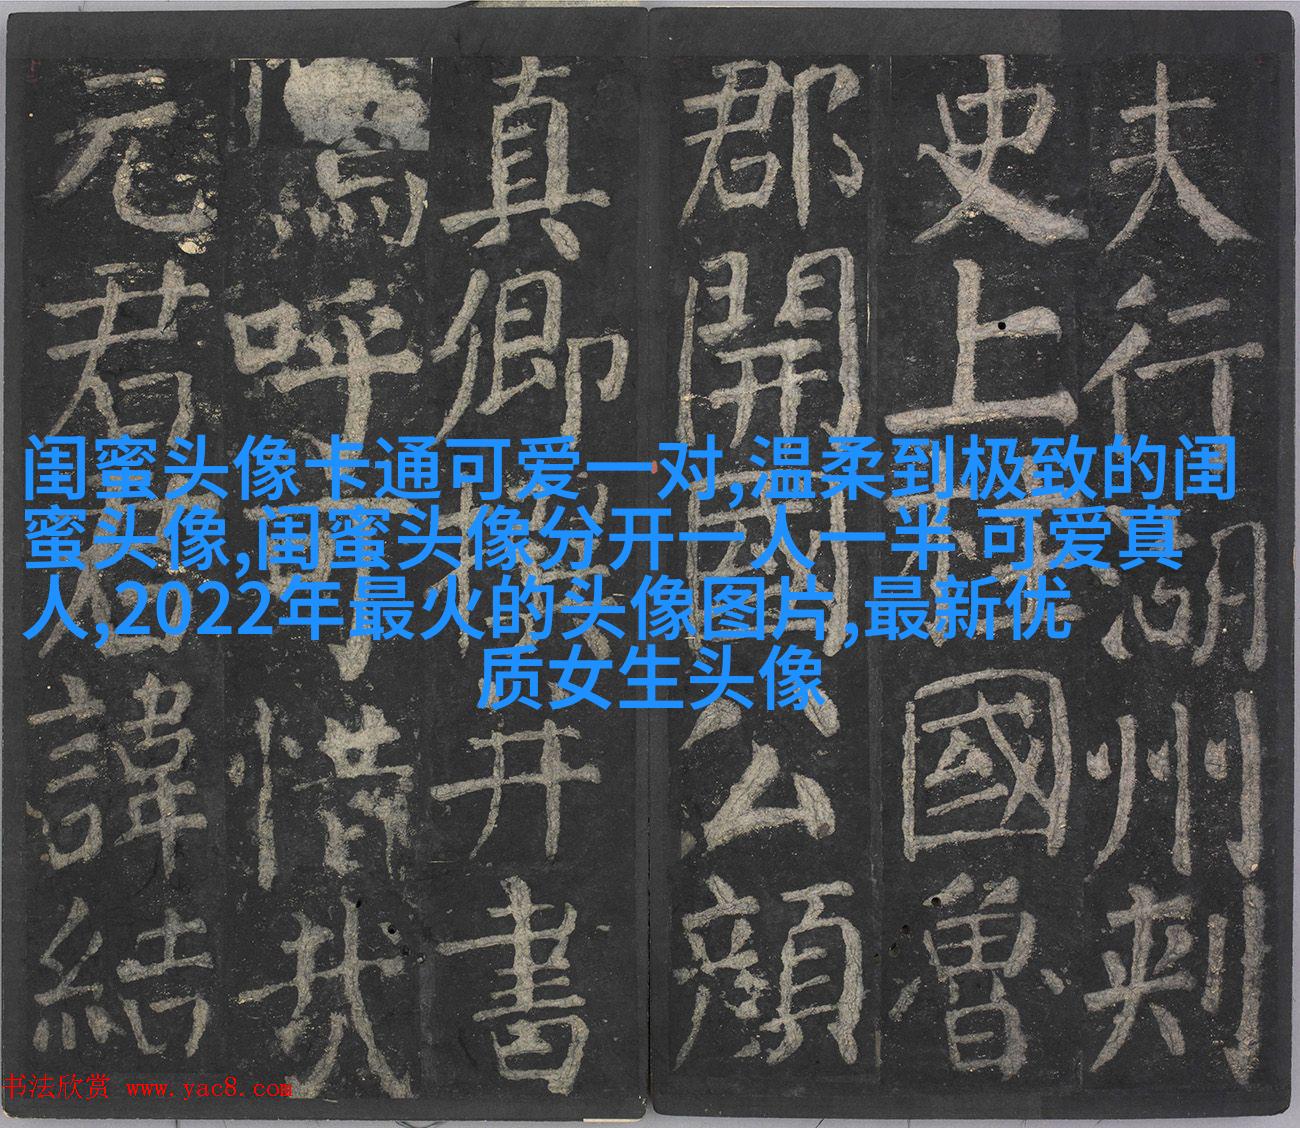 夫行湖州刺
史上柱國魯
郡開國公顏
真卿撰并書
嗚呼可惜哉
元君君諱結
闺蜜头像卡通可爱一对,温柔到极致的闺
蜜头像,闺蜜头像分开一人一半 可爱真
人,2022年最火的头像图片,最新优
质女生头像
书法欣赏 www.yac8.com